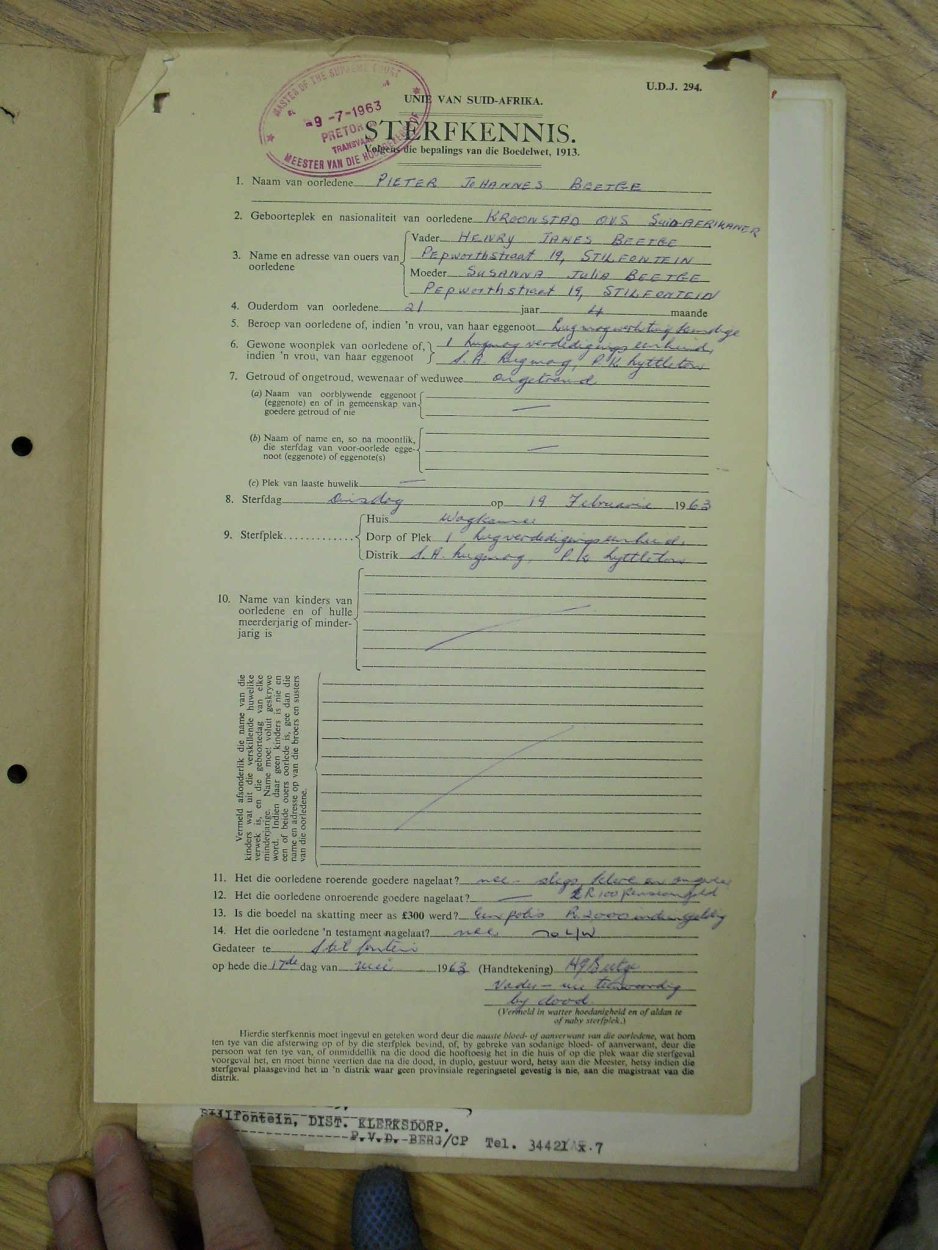 U.D.J. 294.
MASTER OF THE SUPREME COURT
-9 -7-1963
PRETORIA
TRANSVAAL
MEESTER VAN DIE HOOGGEREGSHOF
UNIE VAN SUID-AFRIKA.
STERFKENNIS.
Volgens die bepalings van die Boedelwet, 1913.
1. Naam van oorledene PIETER JOHANNES BEETGE
2. Geboorteplek en nasionaliteit van oorledene KROONSTAD OVS SUID-AFRIKANER
3. Name en adresse van ouers van oorledene
Vader HENRY JAMES BEETGE
Pepworthstraat 19, STILFONTEIN
Moeder SUSANNA Julia BEETGE
Pepworthstraat 19, STILFONTEIN
4. Ouderdom van oorledene 21 jaar 4 maande
5. Beroep van oorledene of, indien 'n vrou, van haar eggenoot lugmagwerktuigkundige
6. Gewone woonplek van oorledene of, indien 'n vrou, van haar eggenoot
1 lugmag verdedigings eenheid,
S.A. lugmag, P.K. Lyttleton
7. Getroud of ongetroud, wewenaar of weduwee ongetroud
(a) Naam van oorblywende eggenoot
(eggenote) en of in gemeenskap van
goedere getroud of nie —
(b) Naam of name en, so na moontlik,
die sterfdag van voor-oorlede egge-
noot (eggenote) of eggenote(s) —
(c) Plek van laaste huwelik —
8. Sterfdag Dinsdag op 19 Februarie 1963
9. Sterfplek............
Huis Wagkamer
Dorp of Plek 1 lugverdedigingseenheid,
Distrik S.A. lugmag, P.K. Lyttleton
10. Name van kinders van
oorledene en of hulle
meerderjarig of minder-
jarig is
Vermeld afsonderlik die name van die
kinders wat uit die verskillende huwelike
verwek is, en die geboortedag van elke
minderjarige. Name moet voluit geskrywe
word. Indien daar geen kinders is nie en
een of beide ouers oorlede is, gee dan die
name en adresse op van die broers en susters
van die oorledene.
11. Het die oorledene roerende goedere nagelaat? nee - slegs klere en
12. Het die oorledene onroerende goedere nagelaat? — R100 pensioengeld
13. Is die boedel na skatting meer as £300 werd? Een polis R2000
14. Het die oorledene 'n testament nagelaat? nee
Gedateer te Stilfontein
op hede die 17de dag van Mei 1963 (Handtekening) HJBeetge
Vader - nie teenwoordig
by dood.
(Vermeld in watter hoedanigheid en of aldan te
of naby sterfplek.)
Hierdie sterfkennis moet ingevul en geteken word deur die naaste bloed- of aanverwant van die oorledene, wat hom
ten tye van die afsterwing op of by die sterfplek bevind, of, by gebreke van sodanige bloed- of aanverwant, deur die
persoon wat ten tye van, of onmiddellik na die dood die hooftoesig het in die huis of op die plek waar die sterfgeval
voorgeval het, en moet binne veertien dae na die dood, in duplo, gestuur word, hetsy aan die Meester, hetsy indien die
sterfgeval plaasgevind het in 'n distrik waar geen provinsiale regeringsetel gevestig is nie, aan die magistraat van die
distrik.
Stilfontein, DIST. KLERKSDORP.
P.V.D. BERG/CP Tel. 34421 x.7